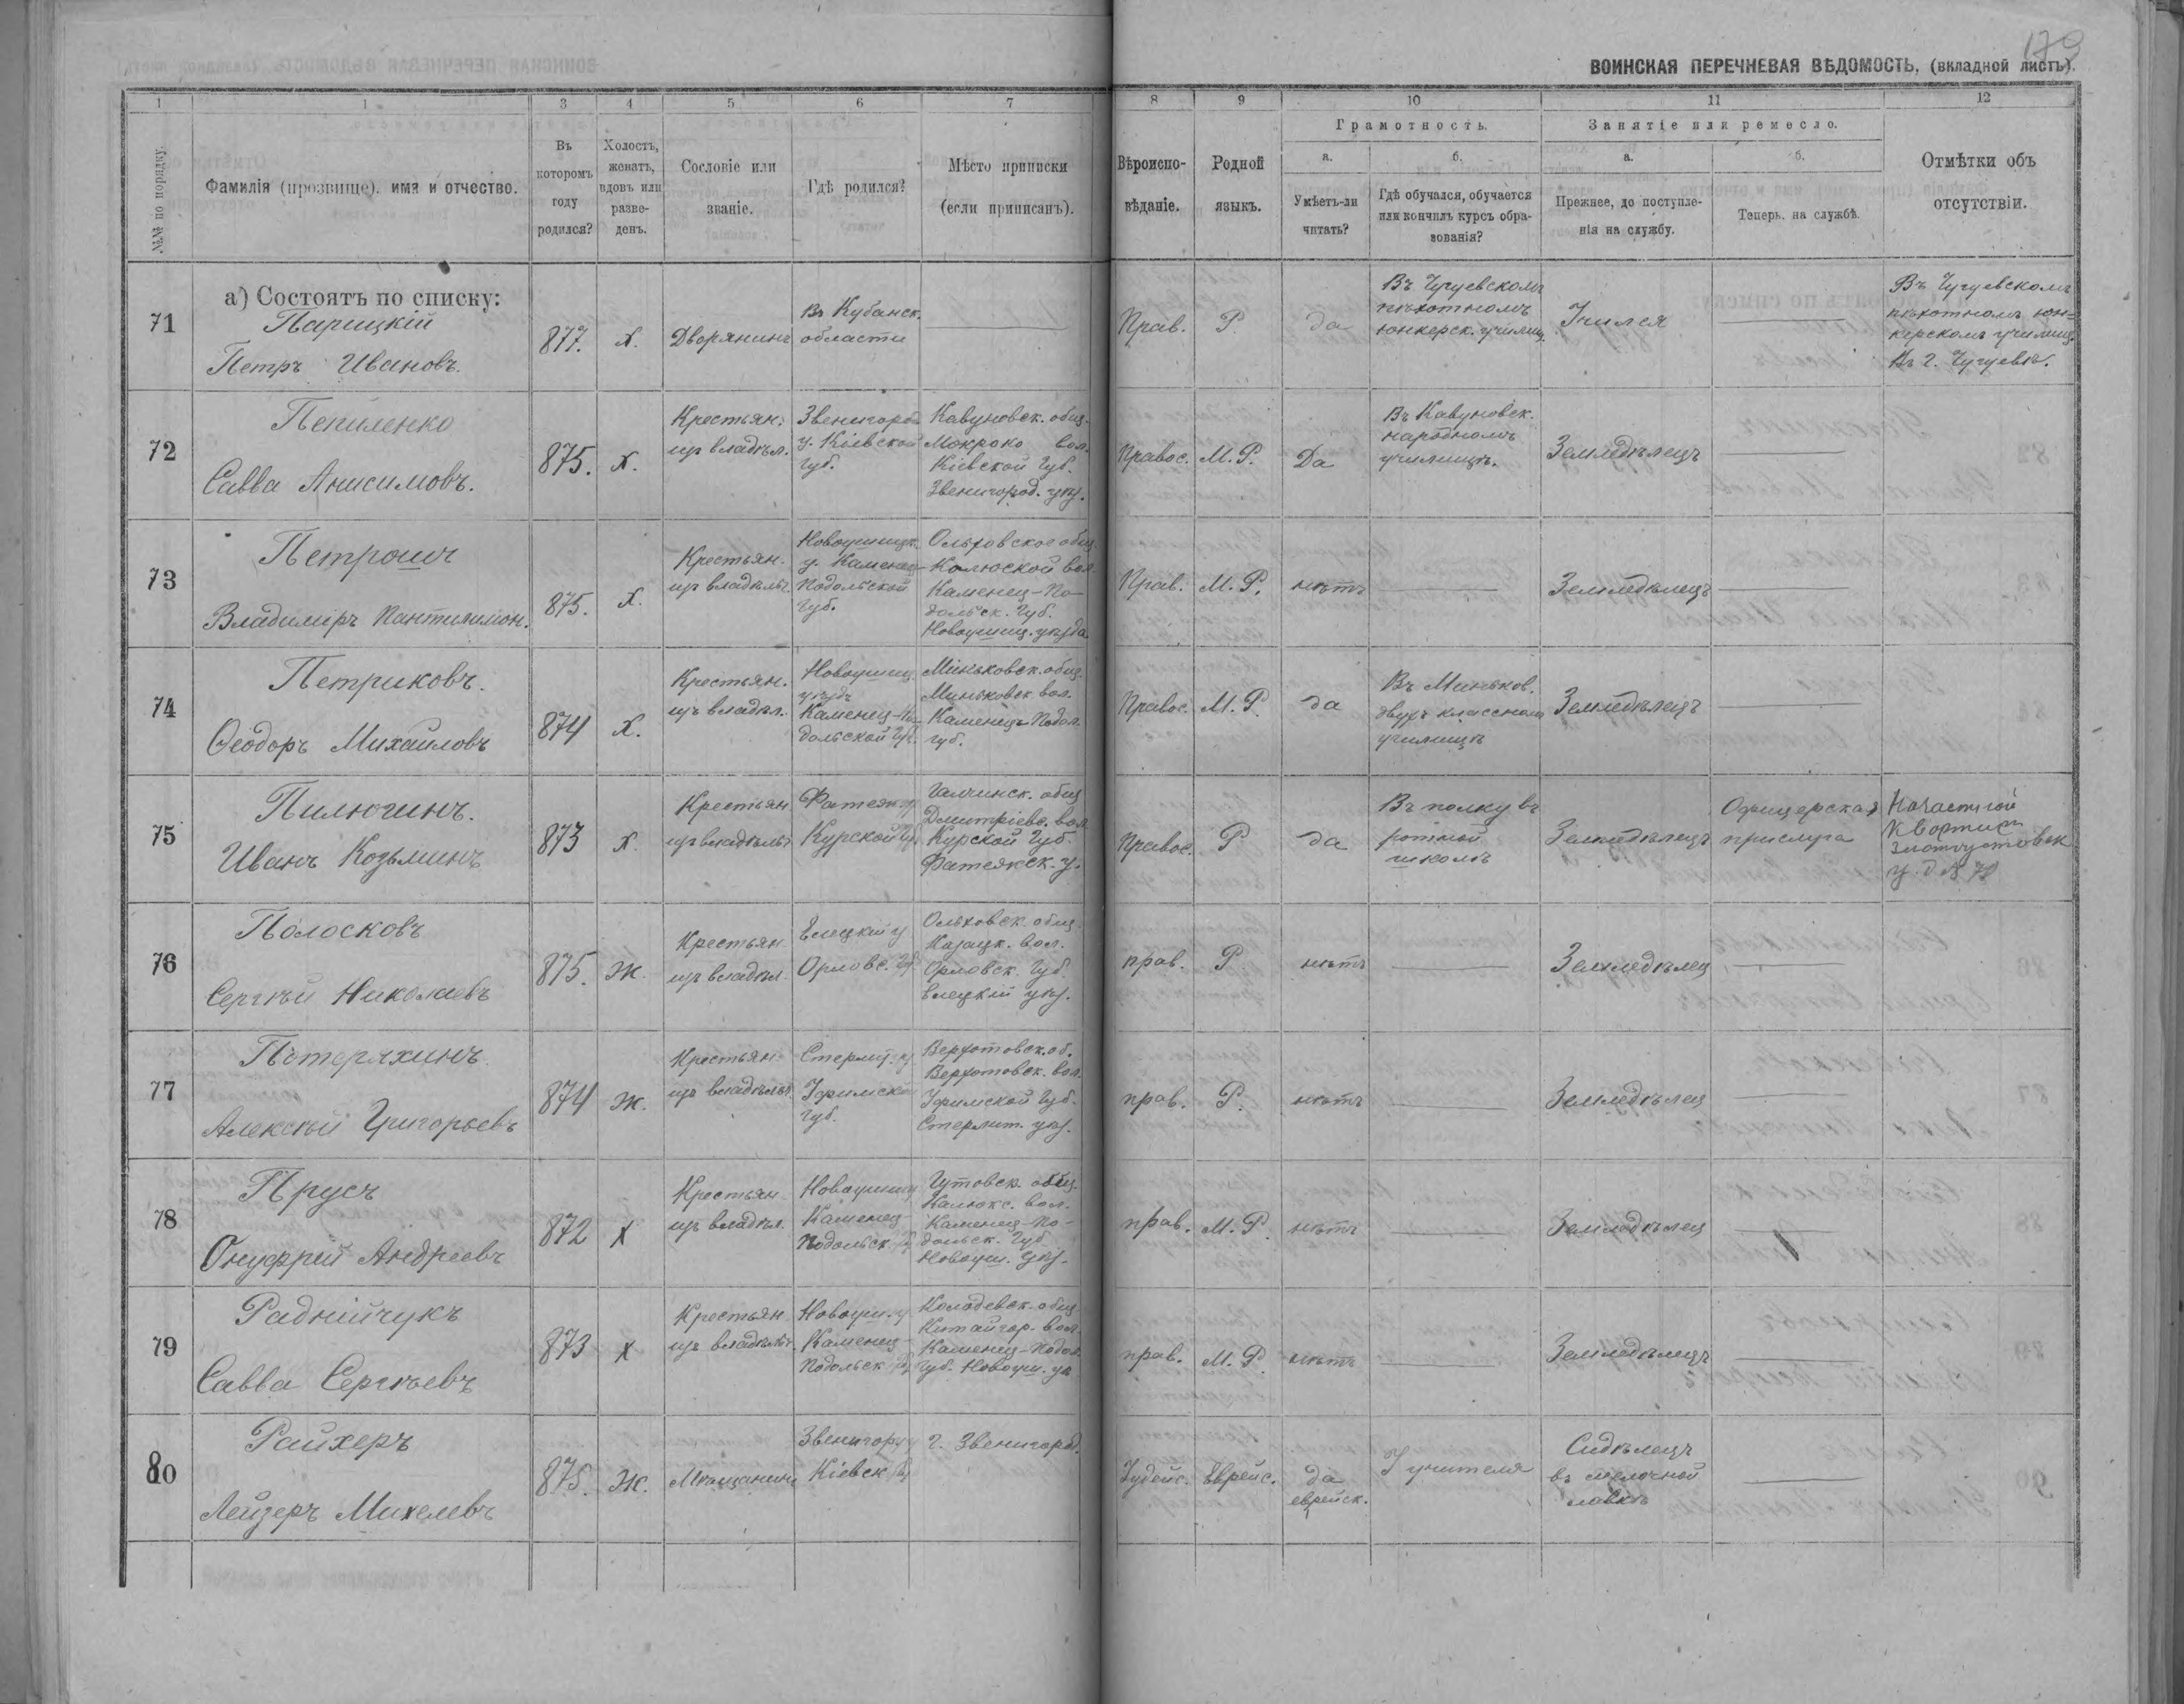 179
ВОИНСКАЯ ПЕРЕЧНЕВАЯ ВѢДОМОСТЬ. (вкладной листъ).
1 1 3 4 5 6 7 8 9 10 11 12
№№ по порядку.
Фамилія (прозвище). имя и отчество.
Въ которомъ году родился?
Холостъ, женатъ, вдовъ или разве- денъ.
Сословіе или званіе.
Гдѣ родился?
Мѣсто приписки (если приписанъ).
Вѣроиспо- вѣданіе.
Родной языкъ.
Грамотность.
а. Умѣетъ-ли читать?
б. Гдѣ обучался, обучается или кончилъ курсъ обра- зованія?
Занятіе или ремесло.
а. Прежнее, до поступле- нія на службу.
б. Теперь. на службѣ.
Отмѣтки объ отсутствіи.
а) Состоятъ по списку:
71
Парицкій
Петръ Ивановъ.
877.
Х.
Дворянинъ
Въ Кубанск.
области
Прав.
Р.
да
Въ Чугуевскомъ
пѣхотномъ
юнкерск. училищ.
Учился
Въ Чугуевскомъ
пѣхотномъ юн-
керскомъ училищ.
Въ г. Чугуевѣ.
72
Пепиленко
Савва Анисимовъ.
875.
Х.
Крестьян.
изъ владѣл.
Звенигород
у. Кіевской
Губ.
Кавуновск. общ.
Мокроко вол.
Кіевской Губ.
Звенигород. уѣз.
Правос.
М. Р.
Да
Въ Кавуновск.
народномъ
училищѣ.
Земледѣлецъ
73
Петрошъ
Владиміръ Пантилимон.
875.
Х.
Крестьян.
изъ владѣльч.
Новоушицк.
у. Каменец-
Подольской
Губ.
Ольховское общ.
Калюской вол.
Каменец-По-
дольск. Губ.
Новоушиц. уѣзда
Прав.
М. Р.
нѣтъ
Земледѣлецъ
74
Петриковъ.
Ѳеодоръ Михайловъ
874
Х.
Крестьян.
изъ владѣл.
Новоушиц.
уѣздъ
Каменец-По-
дольской Губ.
Миньковск. общ.
Миньковск вол.
Каменецъ-Подол.
Губ.
Правос.
М. Р.
да
Въ Миньков.
двухъ классномъ
училищѣ
Земледѣлецъ
75
Пилюгинъ.
Иванъ Козьминъ
873
Х.
Крестьян
изъ владѣльч
Фатежск. у
Курской Губ.
Галчинск. общ
Дмитріевс. вол
Курской Губ.
Фатежск. у.
Правос.
Р
да
Въ полку въ
ротной
школѣ
Земледѣлецъ
Офицерская
прислуга
На частной
квартирѣ
Златоустовск
у. д № 78
76
Полосковъ
Сергѣй Николаевъ
875.
Ж.
Крестьян
изъ владѣл.
Елецкій у
Орловс. Губ
Ольховск. общ.
Казацк. вол.
Орловск. Губ.
Елецкій уѣз.
прав.
Р
нѣтъ
Земледѣлец
77
Потеряхинъ.
Алексѣй Григорьевъ
874
Ж.
Крестьян
изъ владѣльч.
Стерлит. у
Уфимск
Губ.
Верхотовск. об.
Верхотовск. вол.
Уфимской Губ.
Стерлит. уѣз.
прав.
Р.
нѣтъ
Земледѣлец
78
Прусъ
Онуфрій Андреевъ
872
Х
Крестьян
изъ владѣл.
Новоушиц
Каменец
Подольск Губ
Гутовск. общ.
Калюкс. вол.
Каменец-По-
дольск. Губ
Новоуш. уѣз.
прав.
М. Р.
нѣтъ
Земледѣлец
79
Раднійчукъ
Савва Сергѣевъ
873
Х
Крестьян
изъ владѣльч.
Новоуш. у
Каменец-
Подольск Губ
Колодевск. общ.
Китайгор. вол.
Каменец-Подол
Губ. Новоуш. уѣ
прав.
М. Р.
нѣтъ
Земледѣлецъ
80
Райхеръ
Лейзеръ Михелевъ
875.
Ж.
Мѣщанинъ
Звенигор. у
Кіевск Губ
г. Звенигород.
Іудейс.
Еврейс.
да
еврейск.
У учителя
Сидѣлецъ
въ мелочной
лавкѣ